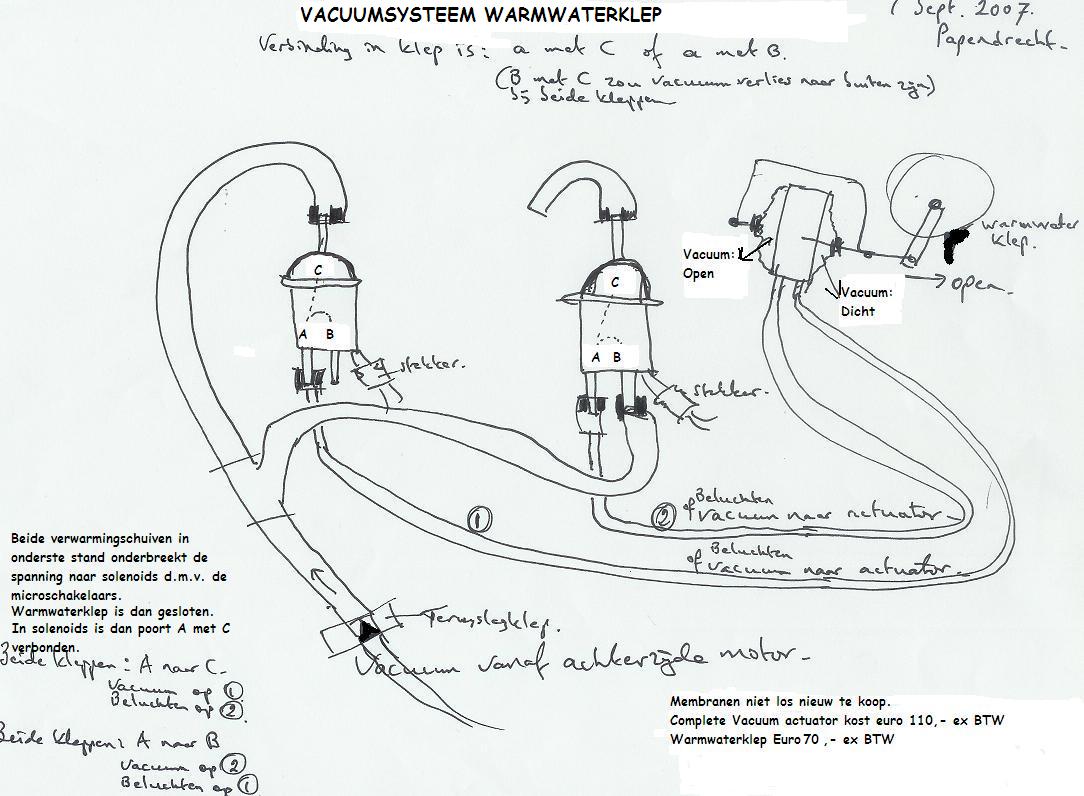 VACUUMSYSTEEM WARMWATERKLEP
1 Sept. 2007.
Papendrecht.
Verbinding in klep is: a met C of a met B.
(B met C zou vacuum verlies naar buiten zijn)
bij beide kleppen
C
A B
stekker.
C
A B
stekker.
Vacuum:
Open
Vacuum:
Dicht
warmwater
klep.
open.
1
2
Beluchten
of vacuum naar actuator.
Beluchten
of vacuum naar actuator.
Beide verwarmingschuiven in
onderste stand onderbreekt de
spanning naar solenoids d.m.v. de
microschakelaars.
Warmwaterklep is dan gesloten.
In solenoids is dan poort A met C
verbonden.
Terugslagklep.
Vacuum vanaf achterzijde motor.
Beide kleppen: A naar C.
Vacuum op 1
Beluchten op 2.
Beide kleppen: A naar B
Vacuum op 2
Beluchten op 1
Membranen niet los nieuw te koop.
Complete Vacuum actuator kost euro 110,- ex BTW
Warmwaterklep Euro 70 ,- ex BTW